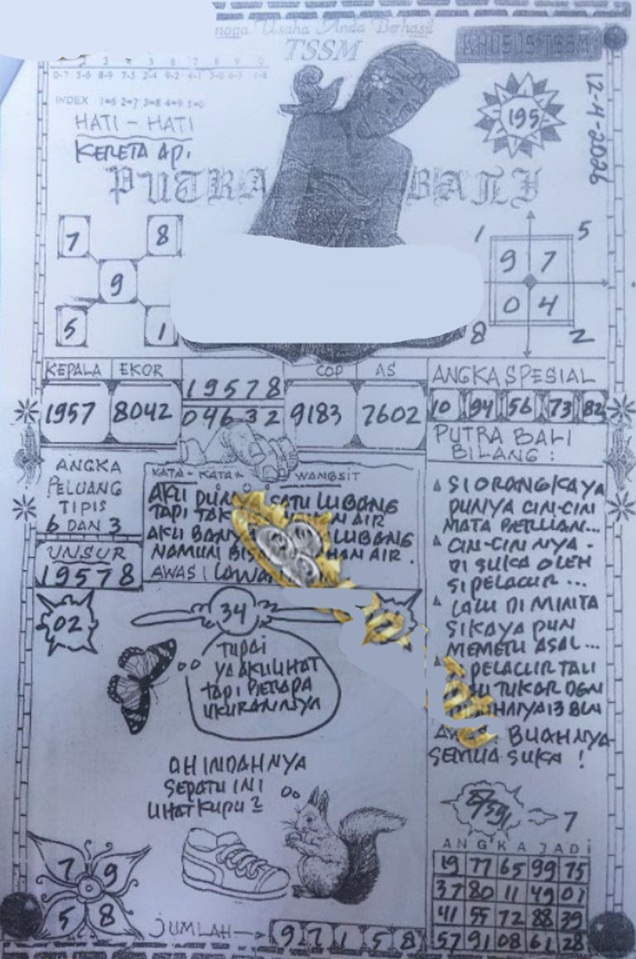 naga Usaha Anda Berhasil
TSSM
KHUSUS TSSM
2 3 4 5 6 7 8 9 0
INDEX 1=6 2=7 3=8 4=9 5=0
HATI - HATI
KERETA API
195
12-4-2026
PUTRA BALI
7 8
9
5 1
1 5
9 7
0 4
8 2
KEPALA EKOR
1957 8042
19578
04632
COP AS
9183 7602
ANGKA SPESIAL
10 94 56 73 82
PUTRA BALI
BILANG :
ANGKA
PELUANG
TIPIS
6 DAN 3
UNSUR
19578
KATA - KATA WANGSIT
AKU SATU LUBANG
TAPI AIR
AKU LUBANG
NAMUN AIR .
AWAS !
SI ORANG KAYA
PUNYA CIN-CIN
MATA
CIN-CIN NYA -
DI SUKA OLEH
SI PELACUR ...
LALU DI MINTA
SI KAYA PUN
MEMETU ASAL ...
PELACUR TALI
TUKAR DGN
13 BLN
BUAHNYA
SEMUA SUKA !
02
34
TUPAI
YA AKU LIHAT
TAPI BERAPA
UKURANNYA
OH INDAHNYA
SEPATU INI
LIHAT KUPU 2
7
7 9
5 8
JUMLAH 9 7 1 5 8
ANGKA JADI
19 77 65 99 75
37 80 11 49 01
41 55 72 88 39
57 91 08 61 28